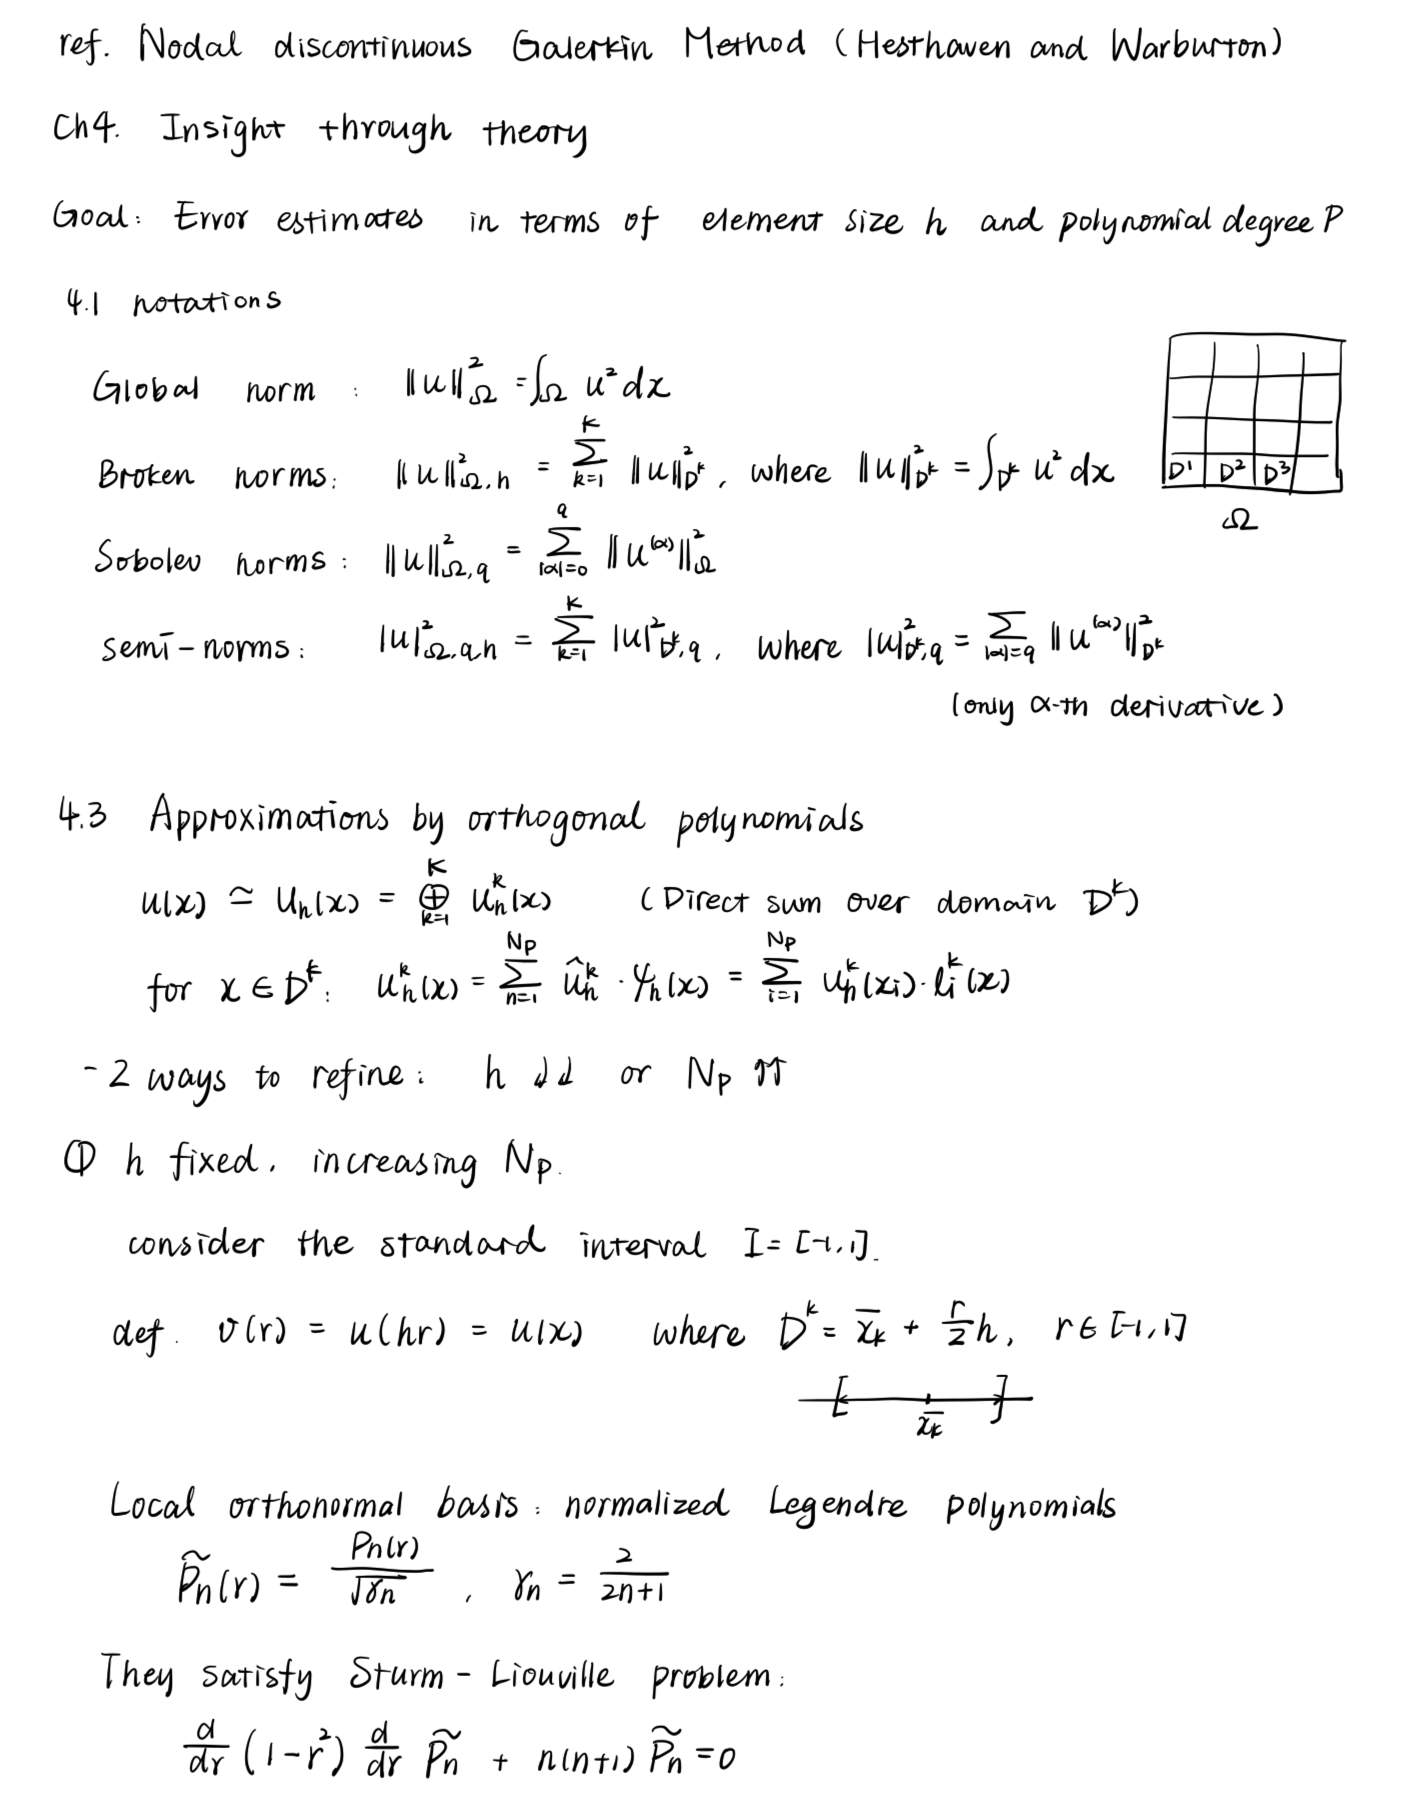 ref. Nodal discontinuous Galerkin Method (Hesthaven and Warburton)
Ch4. Insight through theory
Goal: Error estimates in terms of element size h and polynomial degree P
4.1 notations
Global norm : ‖u‖²_Ω = ∫_Ω u² dx
Broken norms: ‖u‖²_{Ω,h} = Σ_{k=1}^{K} ‖u‖²_{D^k}, where ‖u‖²_{D^k} = ∫_{D^k} u² dx
D¹ D² D³
Ω
Sobolev norms: ‖u‖²_{Ω,q} = Σ_{|α|=0}^{q} ‖u^{(α)}‖²_Ω
semi-norms: |u|²_{Ω,q,h} = Σ_{k=1}^{K} |u|²_{D^k,q}, where |u|²_{D^k,q} = Σ_{|α|=q} ‖u^{(α)}‖²_{D^k}
(only α-th derivative)
4.3 Approximations by orthogonal polynomials
u(x) ≃ u_h(x) = ⊕_{k=1}^{K} u_h^k(x) (Direct sum over domain D^k)
for x ∈ D^k: u_h^k(x) = Σ_{n=1}^{Np} û_n^k · ψ_n(x) = Σ_{i=1}^{Np} u_h^k(x_i) · l_i^k(x)
- 2 ways to refine: h ↓↓ or Np ↑↑
① h fixed, increasing Np.
consider the standard interval I = [-1, 1].
def. v(r) = u(hr) = u(x) where D^k = x̄_k + r/2 h, r ∈ [-1, 1]
x̄_k
Local orthonormal basis: normalized Legendre polynomials
P̃_n(r) = P_n(r)/√γ_n, γ_n = 2/(2n+1)
They satisfy Sturm-Liouville problem:
d/dr (1-r²) d/dr P̃_n + n(n+1) P̃_n = 0